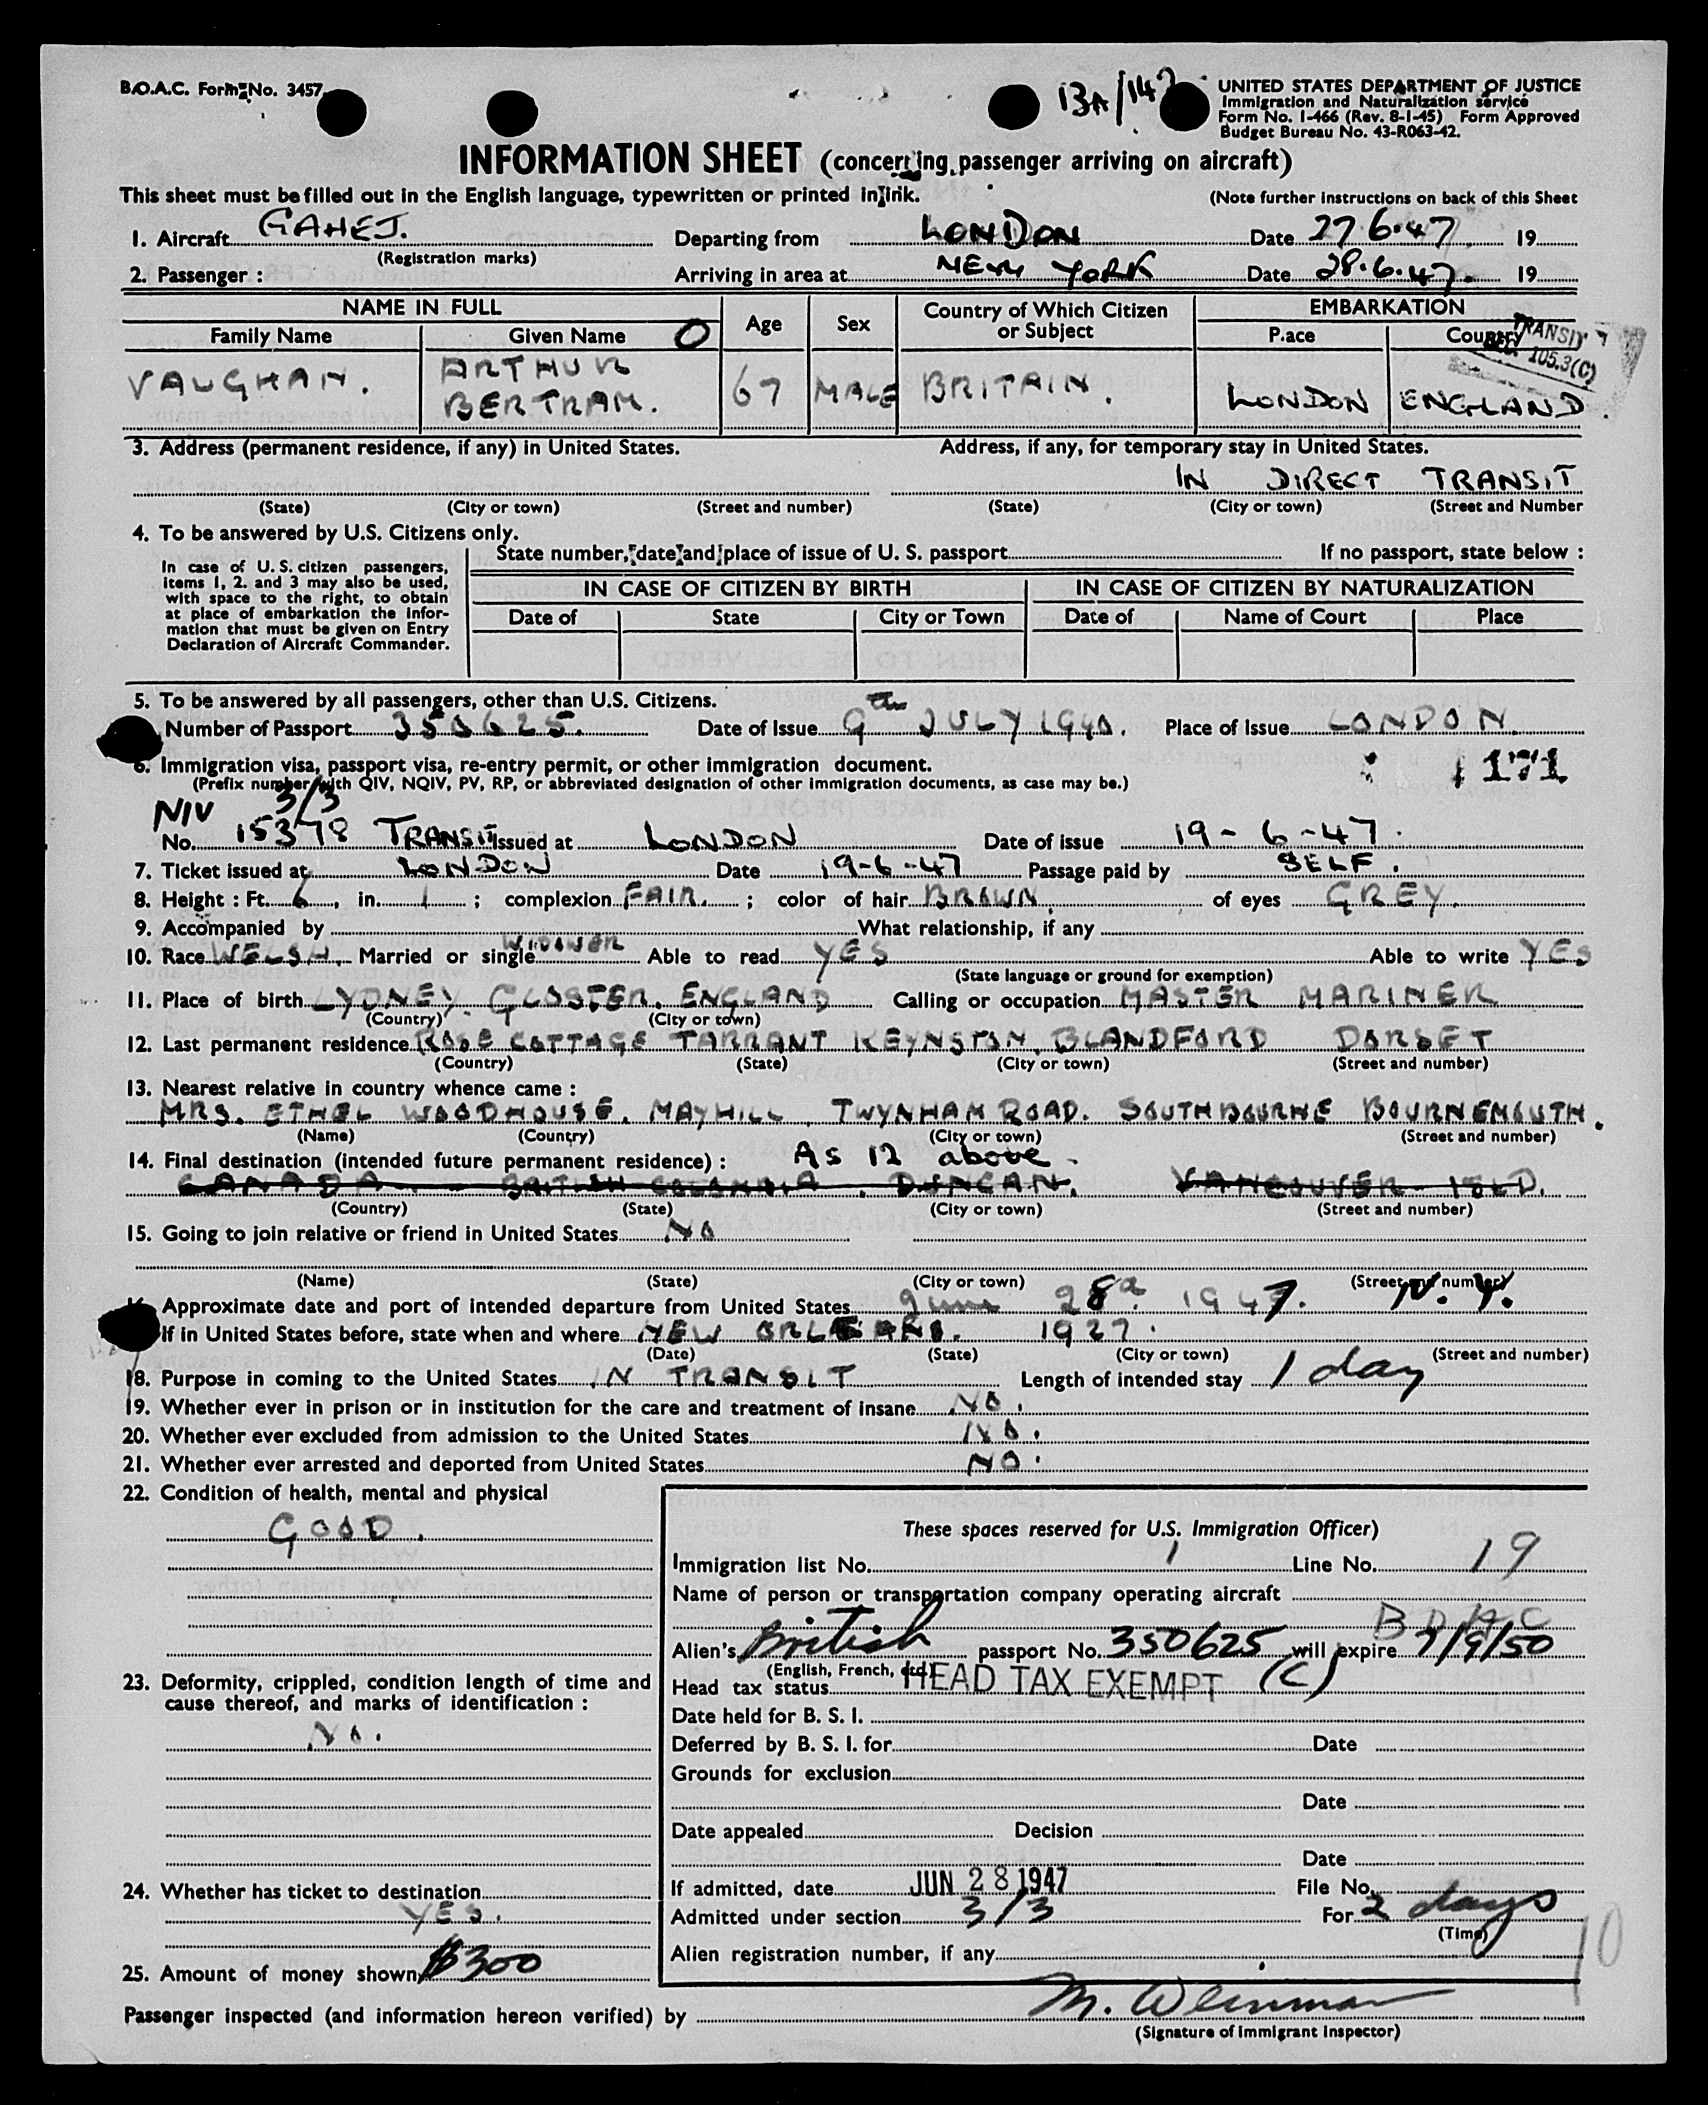 B.O.A.C. Form No. 3457
13A/14
UNITED STATES DEPARTMENT OF JUSTICE
Immigration and Naturalization service
Form No. I-466 (Rev. 8-1-45) Form Approved
Budget Bureau No. 43-R063-42.
INFORMATION SHEET (concerning passenger arriving on aircraft)
This sheet must be filled out in the English language, typewritten or printed in ink.
(Note further instructions on back of this Sheet
1. Aircraft GAHEJ. Departing from LONDON Date 27.6.47. 19
(Registration marks)
2. Passenger : Arriving in area at NEW YORK Date 28.6.47. 19
NAME IN FULL Age Sex Country of Which Citizen or Subject EMBARKATION
Family Name Given Name O Place Country
TRANSIT
105.3(C)
VAUGHAN. ARTHUR BERTRAM. 67 MALE BRITAIN. LONDON ENGLAND.
3. Address (permanent residence, if any) in United States. Address, if any, for temporary stay in United States.
IN DIRECT TRANSIT
(State) (City or town) (Street and number) (State) (City or town) (Street and Number
4. To be answered by U.S. Citizens only.
State number, date and place of issue of U. S. passport If no passport, state below :
In case of U.S. citizen passengers,
items 1, 2. and 3 may also be used,
with space to the right, to obtain
at place of embarkation the infor-
mation that must be given on Entry
Declaration of Aircraft Commander.
IN CASE OF CITIZEN BY BIRTH IN CASE OF CITIZEN BY NATURALIZATION
Date of State City or Town Date of Name of Court Place
5. To be answered by all passengers, other than U.S. Citizens.
Number of Passport 350625. Date of Issue 9th JULY 1940. Place of Issue LONDON.
6. Immigration visa, passport visa, re-entry permit, or other immigration document. 171
(Prefix number with QIV, NQIV, PV, RP, or abbreviated designation of other immigration documents, as case may be.)
NIV 3/3
No. 15378 TRANSIT issued at LONDON Date of issue 19-6-47.
7. Ticket issued at LONDON Date 19-6-47 Passage paid by SELF.
8. Height : Ft. 6, in. 1 ; complexion FAIR. ; color of hair BROWN. of eyes GREY.
9. Accompanied by What relationship, if any
10. Race WELSH. Married or single WIDOWER Able to read YES Able to write YES
(State language or ground for exemption)
11. Place of birth LYDNEY. GLOSTER. ENGLAND Calling or occupation MASTER MARINER
(Country) (City or town)
12. Last permanent residence ROSE COTTAGE TARRANT KEYNSTON. BLANDFORD DORSET
(Country) (State) (City or town) (Street and number)
13. Nearest relative in country whence came :
MRS. ETHEL WOODHOUSE. MAYHILL, TWYNHAM ROAD. SOUTHBOURNE BOURNEMOUTH.
(Name) (Country) (City or town) (Street and number)
14. Final destination (intended future permanent residence) : As 12 above.
CANADA. BRITISH COLUMBIA. DUNCAN. VANCOUVER ISLD.
(Country) (State) (City or town) (Street and number)
15. Going to join relative or friend in United States NO
(Name) (State) (City or town) (Street and number)
Approximate date and port of intended departure from United States June 28a. 1947. N.Y.
If in United States before, state when and where NEW ORLEANS. 1927.
(Date) (State) (City or town) (Street and number)
18. Purpose in coming to the United States IN TRANSIT Length of intended stay 1 day
19. Whether ever in prison or in institution for the care and treatment of insane NO.
20. Whether ever excluded from admission to the United States NO.
21. Whether ever arrested and deported from United States NO.
22. Condition of health, mental and physical
GOOD.
These spaces reserved for U.S. Immigration Officer)
Immigration list No. 1 Line No. 19
Name of person or transportation company operating aircraft
BOAC
Alien's British passport No. 350625 will expire 7/9/50
(English, French, etc.)
23. Deformity, crippled, condition length of time and
cause thereof, and marks of identification :
NO.
Head tax status HEAD TAX EXEMPT (C)
Date held for B. S. I.
Deferred by B. S. I. for Date
Grounds for exclusion
Date
Date appealed Decision
Date
24. Whether has ticket to destination
YES.
If admitted, date JUN 28 1947 File No.
Admitted under section 3/3 For 2 days
(Time)
Alien registration number, if any
10
25. Amount of money shown $300
Passenger inspected (and information hereon verified) by M. Weinman
(Signature of Immigrant Inspector)